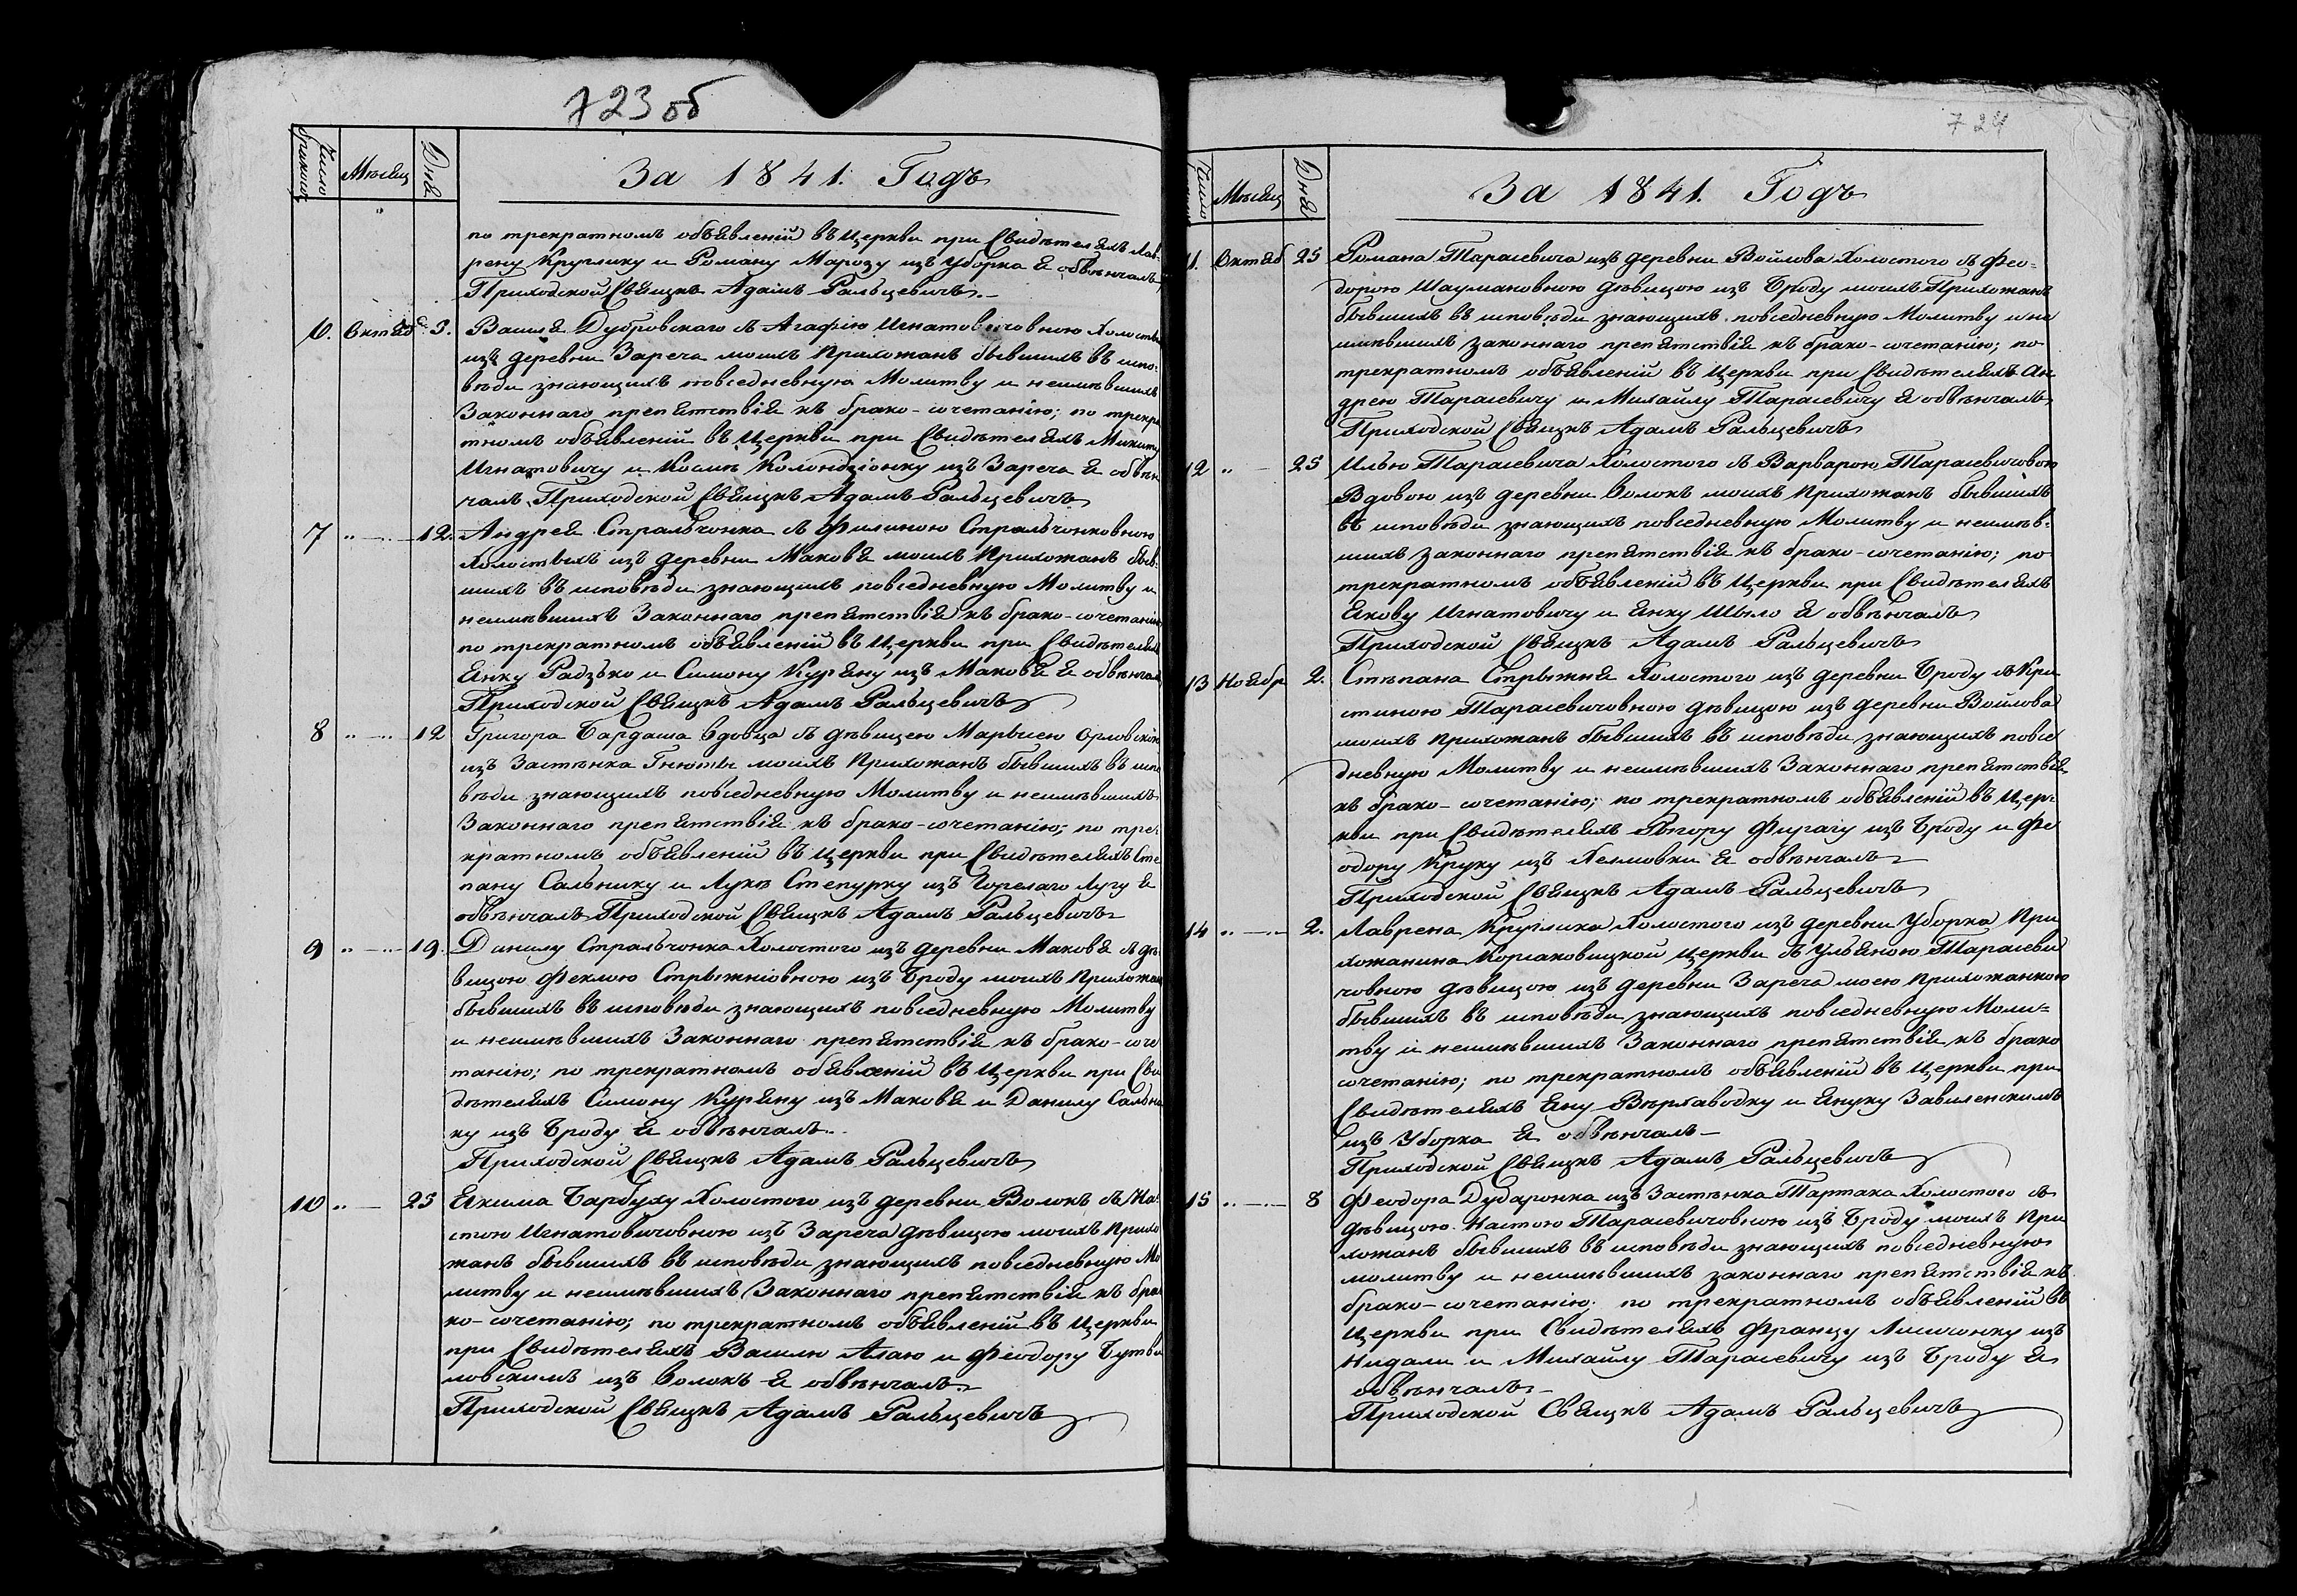 723 об
Число браковъ
Мѣсяц
Дня
За 1841. Годъ
по трекратномъ объявленій въ Церкви при Свидѣтеляхъ Лав-
рену Круглику и Роману Марозу изъ Уборка я обвѣнчалъ
Приходской Свящкъ Адамъ Ральцевичъ.
6. Октяб 5. Василя Дубровскаго съ Агафію Игнатовичовною Холостых
изъ деревни Зареча моихъ Прихожанъ бывшихъ въ испо-
вѣди знающихъ повседневную Молитву и неимѣвшихъ
Законнаго препятствія къ брако-сочетанію; по трекра
тномъ объявленій въ Церкви при Свидѣтеляхъ Микиту
Игнатовичу и Космѣ Колондзіонку изъ Зареча я обвѣн
чалъ. Приходской Свящкъ Адамъ Ральцевичъ
7 „ — 12. Андрея Стральчонка съ Филиною Стральчонковною
Холостыхъ изъ деревни Маковя моихъ Прихожанъ быв-
шихъ въ исповѣди знающихъ повседневную Молитву и
неимѣвшихъ Законнаго препятствія къ брако-сочетанію
по трекратномъ объявленій въ Церкви при Свидѣтеляхъ
Янку Радзько и Симону Куряну изъ Маковя я обвѣнчалъ
Приходской Свящкъ Адамъ Ральцевичъ
8 „ — 12 Григора Бардаша вдовца съ дѣвицею Марысею Орловскою
изъ Застѣнка Гнюты моихъ Прихожанъ бывшихъ въ испо
вѣди знающихъ повседневную Молитву и неимѣвшихъ
Законнаго препятствія къ брако-сочетанію; по тре-
кратномъ объявленій въ Церкви при Свидѣтеляхъ Сте
пану Сальнику и Лукѣ Степурку изъ Горелаго Лугу я
обвѣнчалъ Приходской Свящкъ Адамъ Ральцевичъ
9 „ — 19. Данилу Стральчонка Холостого изъ деревни Маковя съ дѣ-
вицою Феклою Стрыжніовною изъ Броду моихъ Прихожан
бывшихъ въ исповѣди знающихъ повседневную Молитву
и неимѣвшихъ Законнаго препятствія къ брако-соче
танію; по трекратномъ объявленій въ Церкви при Сви
дѣтеляхъ Симону Куряну изъ Маковя и Данилу Сальни
ку изъ Броду я обвѣнчалъ.
Приходской Свящкъ Адамъ Ральцевичъ
10 „ — 25 Якима Барбуху Холостого изъ деревни Волокъ съ На-
стою Игнатовичовною изъ Зареча дѣвицою моихъ Прихо
жанъ бывшихъ въ исповѣди знающихъ повседневную Мо
литву и неимѣвшихъ Законнаго препятствія къ бра
ко-сочетанію; по трекратномъ объявленій въ Церкви
при Свидѣтеляхъ Василю Алаю и Феодору Бутви
ловскимъ изъ Волокъ я обвѣнчалъ.
Приходской Свящкъ Адамъ Ральцевичъ
724
Число
Мѣсяц
Дня
За 1841. Годъ
11. Октяб 25 Романа Тарасевича изъ деревни Войлова Холостого съ Фео-
дорою Шаумановною дѣвицою изъ Броду моихъ Прихожанъ
бывшихъ въ исповѣди знающихъ повседневную Молитву и не
имѣвшихъ законнаго препятствія къ брако-сочетанію; по
трекратномъ объявленій въ Церкви при Свидѣтеляхъ Ан
дрею Тарасевичу и Михайлу Тарасевичу я обвѣнчалъ
Приходской Свящкъ Адамъ Ральцевичъ
12 „ — 25 Илью Тарасевича Холостого съ Варварою Тарасевичовою
Вдовою изъ деревни Волокъ моихъ Прихожанъ бывшихъ
въ исповѣди знающихъ повседневную Молитву и неимѣв-
шихъ законнаго препятствія къ брако-сочетанію; по
трекратномъ объявленій въ Церкви при Свидѣтеляхъ
Якову Игнатовичу и Янку Шыло я обвѣнчалъ
Приходской Свящкъ Адамъ Ральцевичъ
13 Ноябр 2. Стѣпана Стрыжня Холостого изъ деревни Броду съ Кри
стиною Тарасевичовною дѣвицою изъ деревни Войлова
моихъ Прихожанъ бывшихъ въ исповѣди знающихъ повсе
дневную Молитву и неимѣвшихъ Законнаго препятствія
къ брако-сочетанію; по трекратномъ объявленій въ Цер-
кви при Свидѣтеляхъ Фирагу изъ Броду и Фе
одору Круку изъ Хелмовки я обвѣнчалъ
Приходской Свящкъ Адамъ Ральцевичъ
14 „ — 2. Лаврена Круглика Холостого изъ деревни Уборка При
хожанина Корсаковицкой Церкви съ Ульяною Тарасеви
човною дѣвицою изъ деревни Зареча моею Прихожанкою
бывшихъ въ исповѣди знающихъ повседневную Моли=
тву и неимѣвшихъ Законнаго препятствія къ брако
сочетанію; по трекратномъ объявленій въ Церкви при
Свидѣтеляхъ Яну Вѣрхаводку и Януку Завиленскимъ
изъ Уборка я обвѣнчалъ
Приходской Свящкъ Адамъ Ральцевичъ
15 „ — 8 Феодора Дударонка изъ Застѣнка Тартака Холостого съ
дѣвицою Настою Тарасевичовною изъ Броду моихъ При
хожанъ бывшихъ въ исповѣди знающихъ повседневную
молитву и неимѣвшихъ законнаго препятствія къ
брако-сочетанію; по трекратномъ объявленій въ
Церкви при Свидѣтеляхъ Францу Лисичонку изъ
Нидали и Михайлу Тарасевичу изъ Броду я
обвѣнчалъ
Приходской Свящкъ Адамъ Ральцевичъ